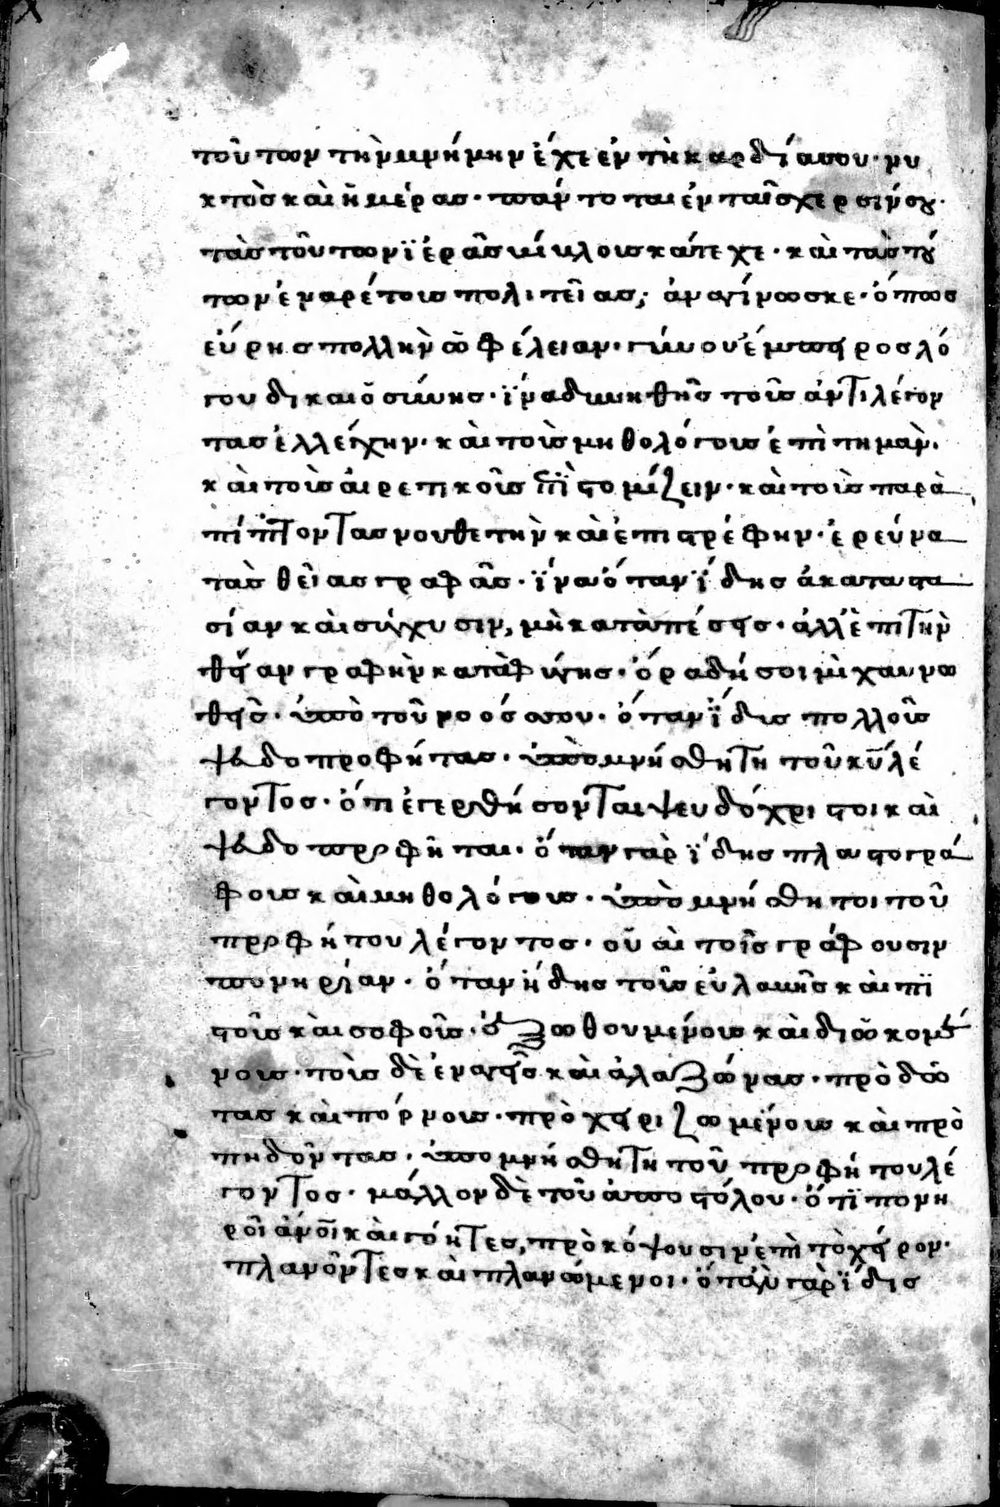 τοῦ των τὴν μνήμην ἔχε ἐν τὴ καρδία σου· νυ
κτὸσ καὶ ἡμέρασ· πάντοτε ἐν ταῖσ χερσίν σου·
τὰσ τοῦ των ϊ ἑρὰσ βίβλουσ κάτεχε· καὶ τὰσ τού
των ἐναρέτουσ πολιτεῖασ, ἀναγίνωσκε· ὅπωσ
εὕρησ πολλὴν ὠφέλειαν· γίνου ἔμπειροσ λό
γου δικαιὸσύνησ· ϊνα δυνηθῆσ τοῖσ ἀντιλέγον
τασ ἐλλέγχην· καὶ τοὶσ μηθολόγουσ ἐπὶτημὰν·
καὶ τοὶσ αἱρετικοῖσ ἐπϊστομίζειν· καὶ τοὶσ παρὰ
πίπτοντασ νουθετὴν καὶ ἐπιστρέφην· ἐρεύνα
τὰσ θεῖασ γραφὰσ· ϊνα ὅταν ϊδησ ἀκαταστα
σίαν καὶ σύγχυσιν, μὴ καταπέσησ· ἀλλ᾽ ἐπὶ τὴν
θείαν γραφὴν καταφύγησ· ὅρα δή σοι μὶ χαυνω
θεῖσ· ὑπὸ τοῦ νοόσσου· ὅταν ϊδισ πολλοῖσ
ψευδοπροφήτασ· ὑπὸμνήσθητη τοῦ κῦ λέ
γοντοσ· ὅτι ἐγερθήσονται ψευδόχριστοι καὶ
ψευδοπροφῆται· ὅταν γὰρ ϊδησ πλαστογρά
φουσ καὶ μηθολόγουσ· ὑπὸμνήσθητοι τοῦ
προφήτου λέγοντοσ· οὔαὶ τοῖσ γράφουσιν
πονηρίαν· ὅταν ἤδησ τοῖσ εὐλαβῆσ καὶ πϊ
στοῖσ καὶ σοφοῖσ· ἐξωθουμένουσ καὶ διῶκομέ
νουσ· τοὶσ δὲ ἐναγεῖσ καὶ ἀλαζώνασ· πρὸδό
τασ καὶ πόρνουσ· πρὸχειριζωμένουσ καὶ πρὸ
πηδοῦντασ· ὑπομνήσθητη τοῦ προφήτου λέ
γοντοσ· μάλλον δὲ τοῦ ἀποστόλου· ὅτϊ πονη
ροῖ ἄνοῖ καὶ γόητεσ, πρὸκόψουσιν ἐπὶ τὸ χείρον·
πλανοῦντεσ καὶ πλανώμενοι· ὅταν γὰρ ϊδισ